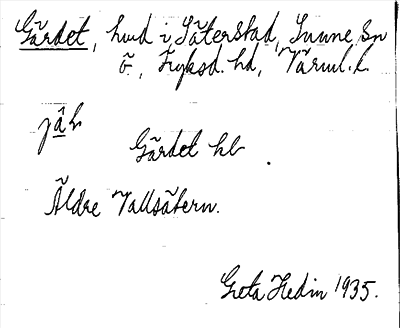 Gärdet, hmd i Säterstad, Sunne sn
ö., Fryksd. hd, Värml. l.
Gärdet hb
Äldre Vallsätern.
Greta Hedin 1935.